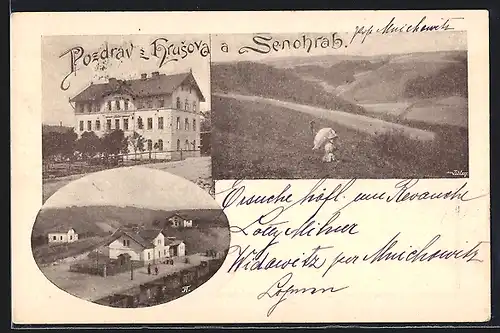 Pozdrav z Hrušova a Senohrab.
p/p Mnichowitz
Ersuche höfl. um Revanche
Loty Milner
Widowitz per Mnichowitz